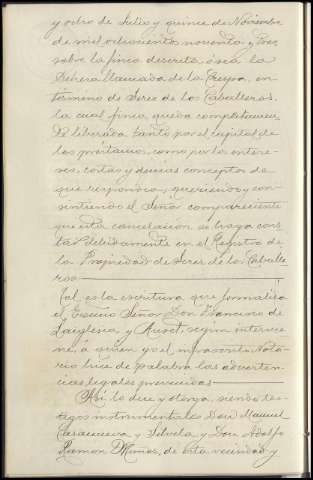 y ocho de Julio y quince de Noviembre
de mil ochocientos noventa y tres,
sobre la finca descrita, ó sea la
Dehesa llamada de la Crespa, en
término de Jerez de los Caballeros,
la cual finca queda completamen-
te liberada tanto por el capital de
los préstamos, como por los intere-
ses, costas y demas conceptos de
que respondia; queriendo y con-
sintiendo el Señor compareciente
que esta cancelacion se haga cons-
tar debidamente en el Registro de
la Propiedad de Jerez de los Caballe-
ros
Tal es la escritura que formaliza
el Excmo Señor Don Francisco de
Laiglesia y Auset, segun intervie-
ne, á quien yo el infrascrito Nota-
rio hice de palabra las adverten-
cias legales prevenidas
Así lo dice y otorga, siendo tes-
tigos instrumentales Don Manuel
Casanueva y Silvela y Don Adolfo
Ramon Muñoz, de esta vecindad y